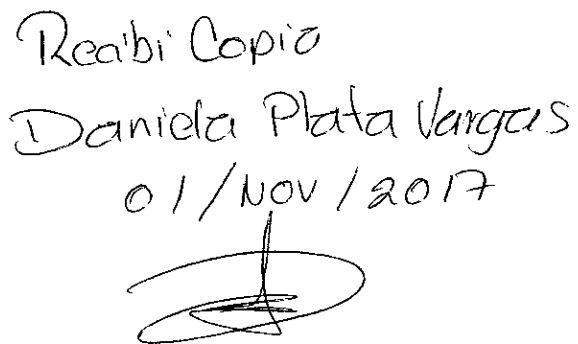 Recibi Copia
Daniela Plata Vargas
01/NOV/2017